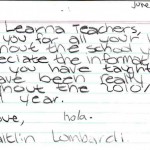 June
Learna Teachers,
you for all you
hout the school y
eciate the informat
you have taught
ave been real
ghout the
year.
ove, hola.
aitlin Lombardi